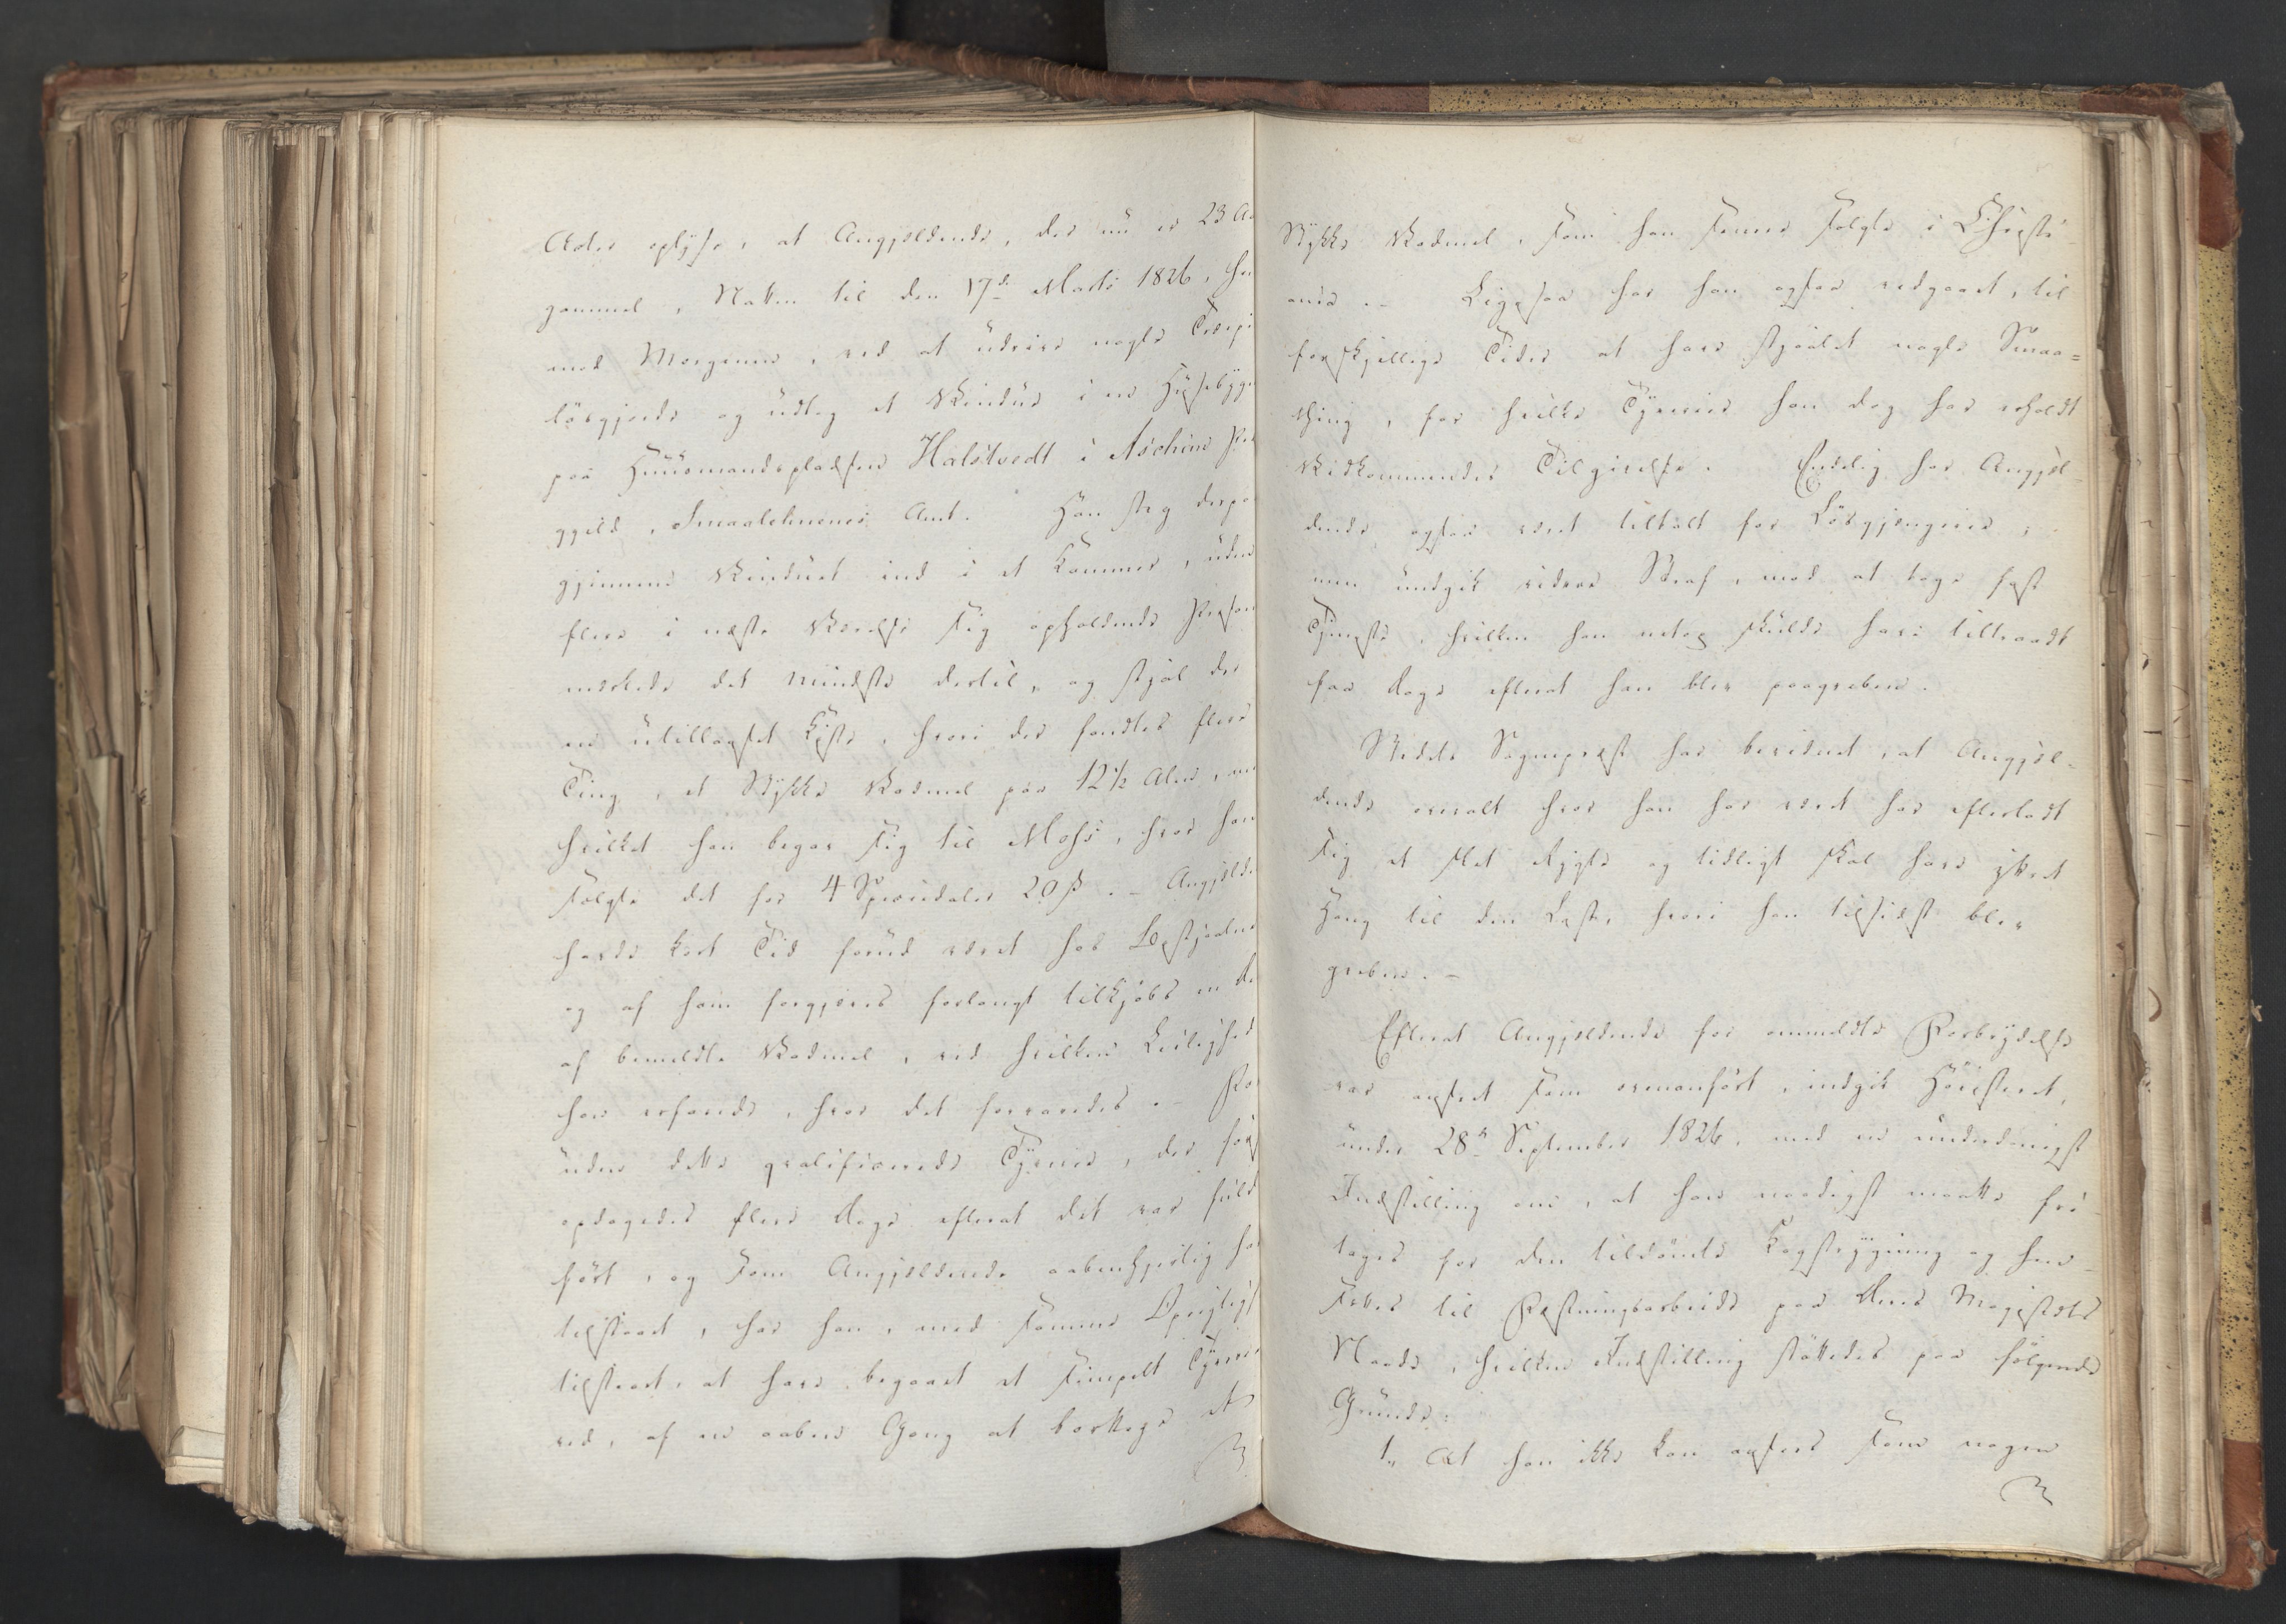 Acter oplyse, at Angjeldende, der nu er 23 Aa
gammel, Natten til den 17de Marts 1826, he
mod Morgenen, ved at udrive nogle Træpi
lösgjorde og udtog et Vindue i en Huusebygn
paa Huusmandspladsen Halstvedt i Aschims Præ
gjeld, Smaalehnenes Amt. Han steg derpaa
gjennem Vinduet ind i et Kammer, uden
flere i næste Værelse sig opholdende Person
mærkede det mindste dertil, og stjal der
en utillaaset Kiste, hvori der fandtes flere
Ting, et Stykke Vadmel paa 12½ Alen, me
hvilket han begav sig til Moss, hvor han
solgte det for 4 Speciedaler 20 ß. – Angjelde
havde kort Tid forud været hos Bestjaalne
og af ham forgjeves forlangt tilkjöbs en De
af bemeldte Vadmel, ved hvilken Leilighed
han erfarede, hvor det forvaredes. – For
uden dette qvalificerede Tyverie, der först
opdagedes flere Dage efterat det var fuld
fört, og som Angjeldende aabenhjertig har
tilstaaet, har han, med samme Oprigtigh
tilstaaet, at have begaaet et simpelt Tyverie
ved, af en aaben Gang at borttage et
Stykke Vadmel, som han senere solgte i Christi-
ania. – Ligesaa har han ogsaa vedgaaet, til
forskjellige Tider at have stjaalet nogle Smaa=
thing, for hvilke Tyverier han dog har erholdt
Vedkommendes Tilgivelse. Endelig har Angjel-
dende ogsaa været tiltalt for Lösgjængerie,
men undgik videre Straf, mod at tage fast
Tjeneste, hvilken han netop skulde have tiltraadt
faa Dage efterat han blev paagreben.
Stedets Sognepræst har bevidnet, at Angjel-
dende overalt hvor han har været har efterladt
sig et slet Rygte og tidligt skal have yttret
Hang til den Last, hvori han tilsidst blev
greben. –
Efterat Angjeldende for anmeldte Forbrydelse
var anseet som ovenanfört, indgik Höiesteret,
under 28de September 1826, med en underdanigst
Indstilling om, at han naadigst maatte fri-
tages for den tildömte Kagstrygning og hen-
sættes til Fæstningsarbeide paa Deres Majestæts
Naade, hvilken Indstilling stöttedes paa fölgende
Grunde:
1., At han ikke kan ansees som nogen